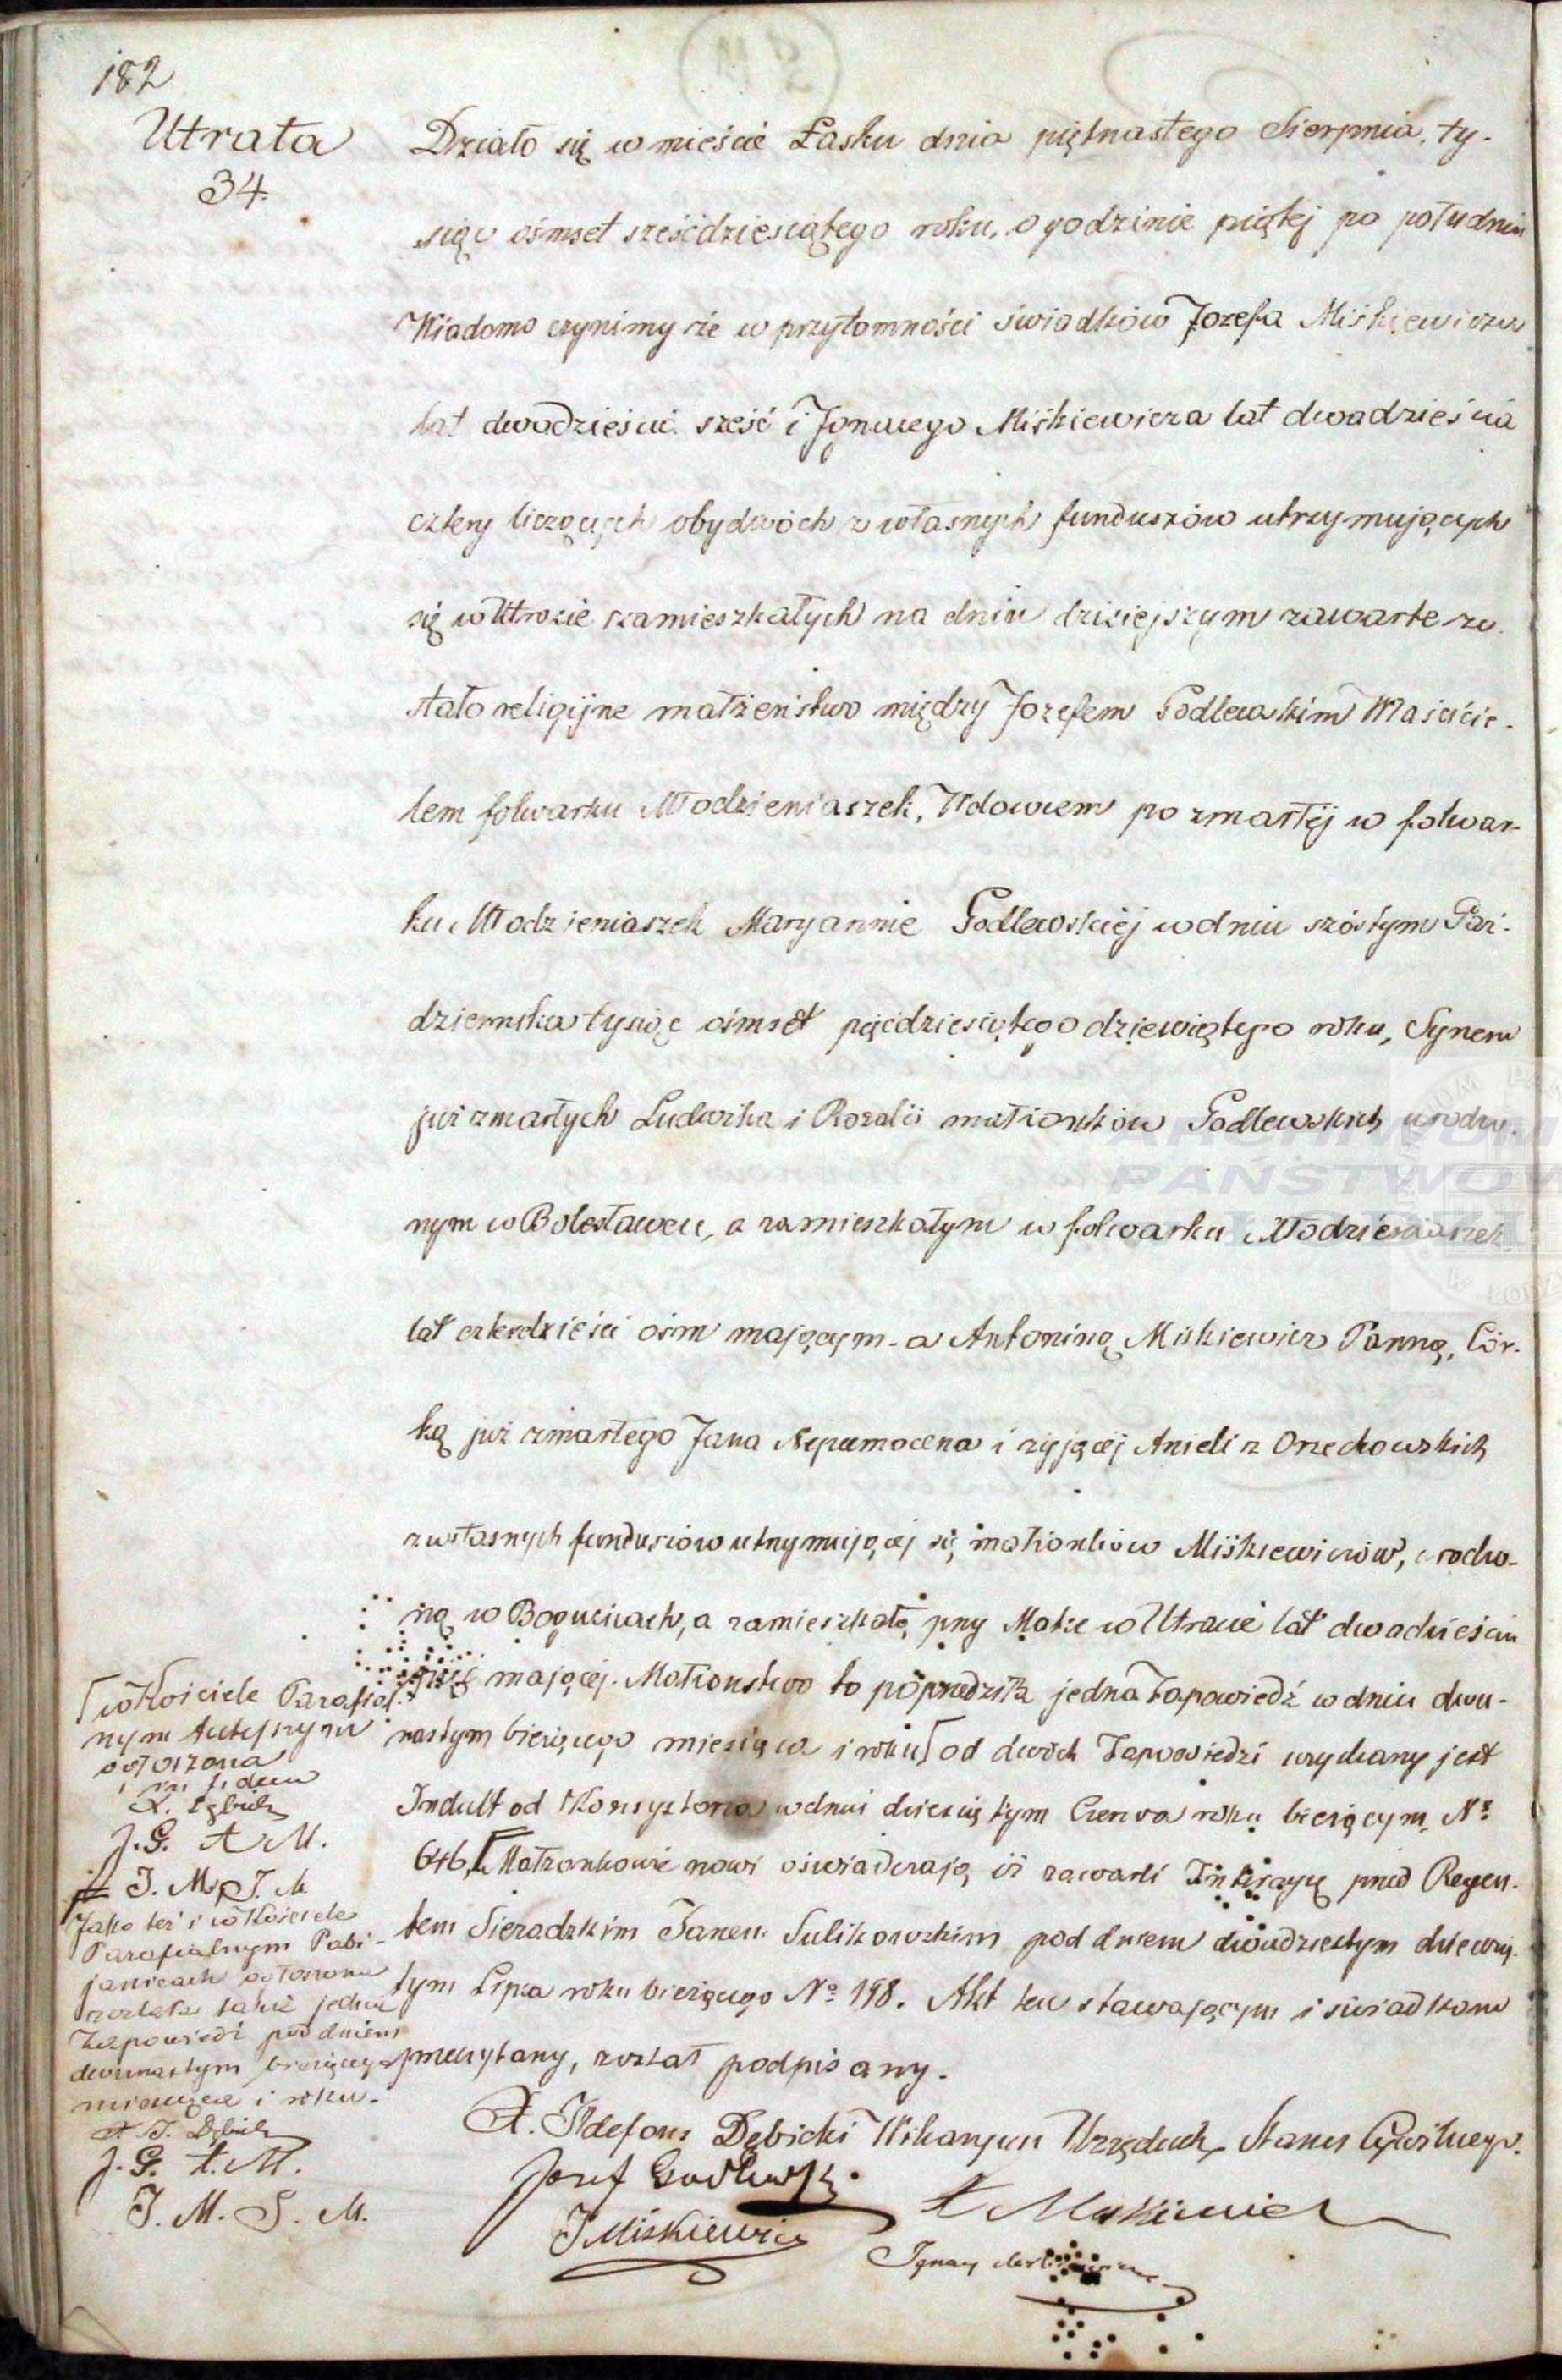 182
Utrata
34.
Działo się w mieście Łasku dnia piętnastego Sierpnia, ty-
siąc ośmset sześćdziesiątego roku, o godzinie piątej po południu
Wiadomo czynimy że w przytomności świadków Jozefa Miśkiewicza
lat dwadzieścia sześć i Ignacego Miśkiewicza lat dwadzieścia
cztery liczących obydwóch z własnych funduszów utrzymujących
się w Utracie zamieszkałych na dniu dzisiejszym zawarte zo-
stało religijne małżeństwo między Jozefem Godlewskim Właście-
lem folwarku Młodzieniaszek, Wdowcem po zmarłéj w folwar-
ku Młodzieniaszek Maryannie Godlewskiéj w dniu szóstym Paź-
dziernika tysiąc ośmset pięćdziesiątego dziewiątego roku, Synem
już zmarłych Ludwika i Rozalii małżonków Godlewskich urodzo-
nym w Bolesławcu, a zamieszkałym w folwarku Młodzieniaszek
lat czterdzieści ośm mającym - a Antoniną Miśkiewicz Panną, Cór-
ką już zmarłego Jana Nepumocena i żyjącéj Anieli z Orzechowskich
z własnych funduszów utrzymującéj się małżonków Miśkiewiczów, urodzo-
ną w Bogucicach, a zamieszkałą przy Matce w Utracie lat dwadzieścia
mającéj. Małżeństwo to poprzedziła jedna Zapowiedź w dniu dwu-
nastym bieżącego miesiąca i roku od dwóch Zapowiedzi uzyskany jest
Indult od Konsystorza w dniu dziesiątym Czerwca roku bieżącym, Nr
646, Małżonkowie nowi oświadczają, iż zawarli Intercyzę przed Regen-
tem Sieradzkim Janem Sulikowskim pod dniem dwudziestym dziewią-
tym Lipca roku bieżącego No 198. Akt ten stawającym i świadkom
przeczytany, został podpisany.
X. Ildefons Dębicki Wikaryusz Urzędnik Stanu Cywilnego.
Józef Godlewski
A Miśkiewicz
J Miśkiewicz
Ignacy
w Kościele Parafial-
nym tutejszym
ogłoszona
X. Dębicki
J. G. A. M.
J. M. J. M
Jako też i w Kościele
Parafialnym Pabi-
janicach ogłoszona
została także jedna
Zapowiedź pod dniem
dwunastym bieżącego
miesiąca i roku.
X. J. Dębicki
J. G. A. M.
J. M. J. M.
ARCHIWUM
PAŃSTWOW
ŁODZI